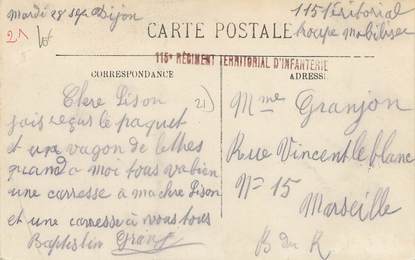 Mardi 28 sep Dijon
115 Territorial
troupe mobiliser
21
CARTE POSTALE
115e RÉGIMENT TERRITORIAL D'INFANTERIE
CORRESPONDANCE
ADRESSE
Chere Lison
jais reçus le paquet
et un vagon de lettres
quand a moi tous va bien
une carresse a ma chre Lison
et une carresse à vous tous
Baptistin Granj
21
Mme Granjon
Rue Vincent leblanc
N= 15
Marseille
B du R